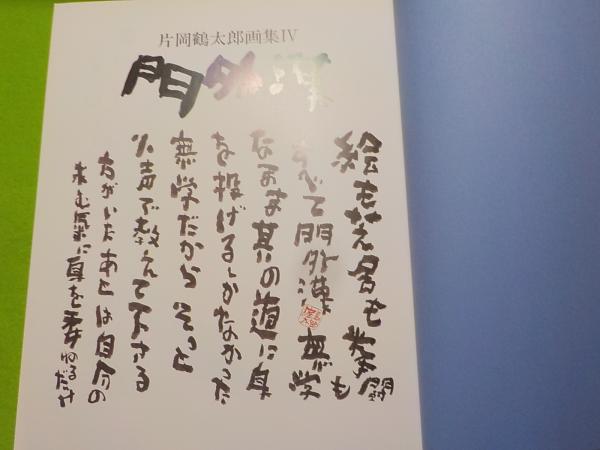 片岡鶴太郎画集IV
門外漢
絵も芸名も拳闘も
すべて門外漢 無学
なまま其の道に身
を投げるしかなかった
無学だから そっと
小声で教えて下さる
方がいたあとは自分の
身を委ねるだけ